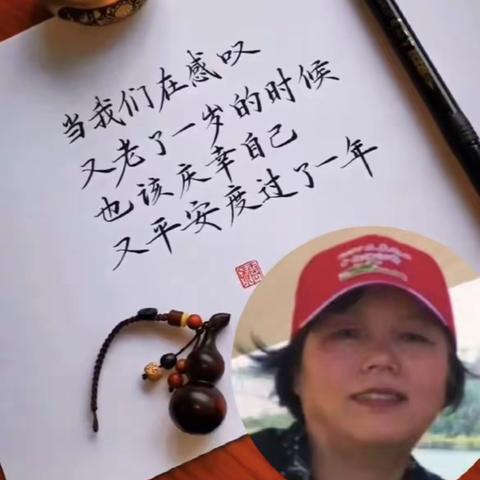 当我们在感叹
又老了一岁的时候
也该庆幸自己
又平安度过了一年